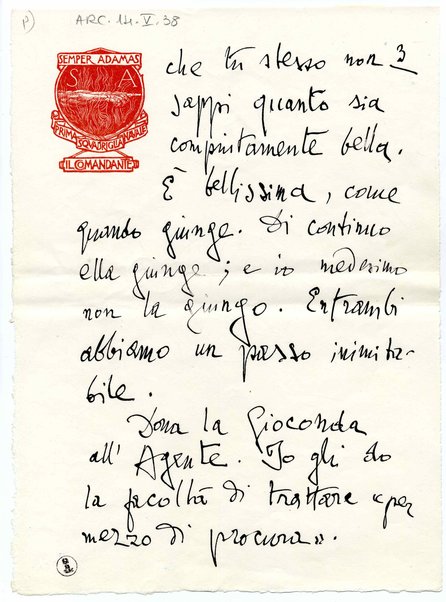 ARC. 14. V. 38
SEMPER ADAMAS
S A
PRIMA SQUADRIGLIA NAVALE
IL COMANDANTE
3
che tu stesso non
sappi quanto sia
compiutamente bella.
È bellissima, come
quando giunge. Di continuo
ella giunge; e io medesimo
non la giungo. Entrambi
abbiamo un passo inimita-
bile.
Dona la Gioconda
all' Agente. Io gli do
la facoltà di trattare «per
mezzo di procura».